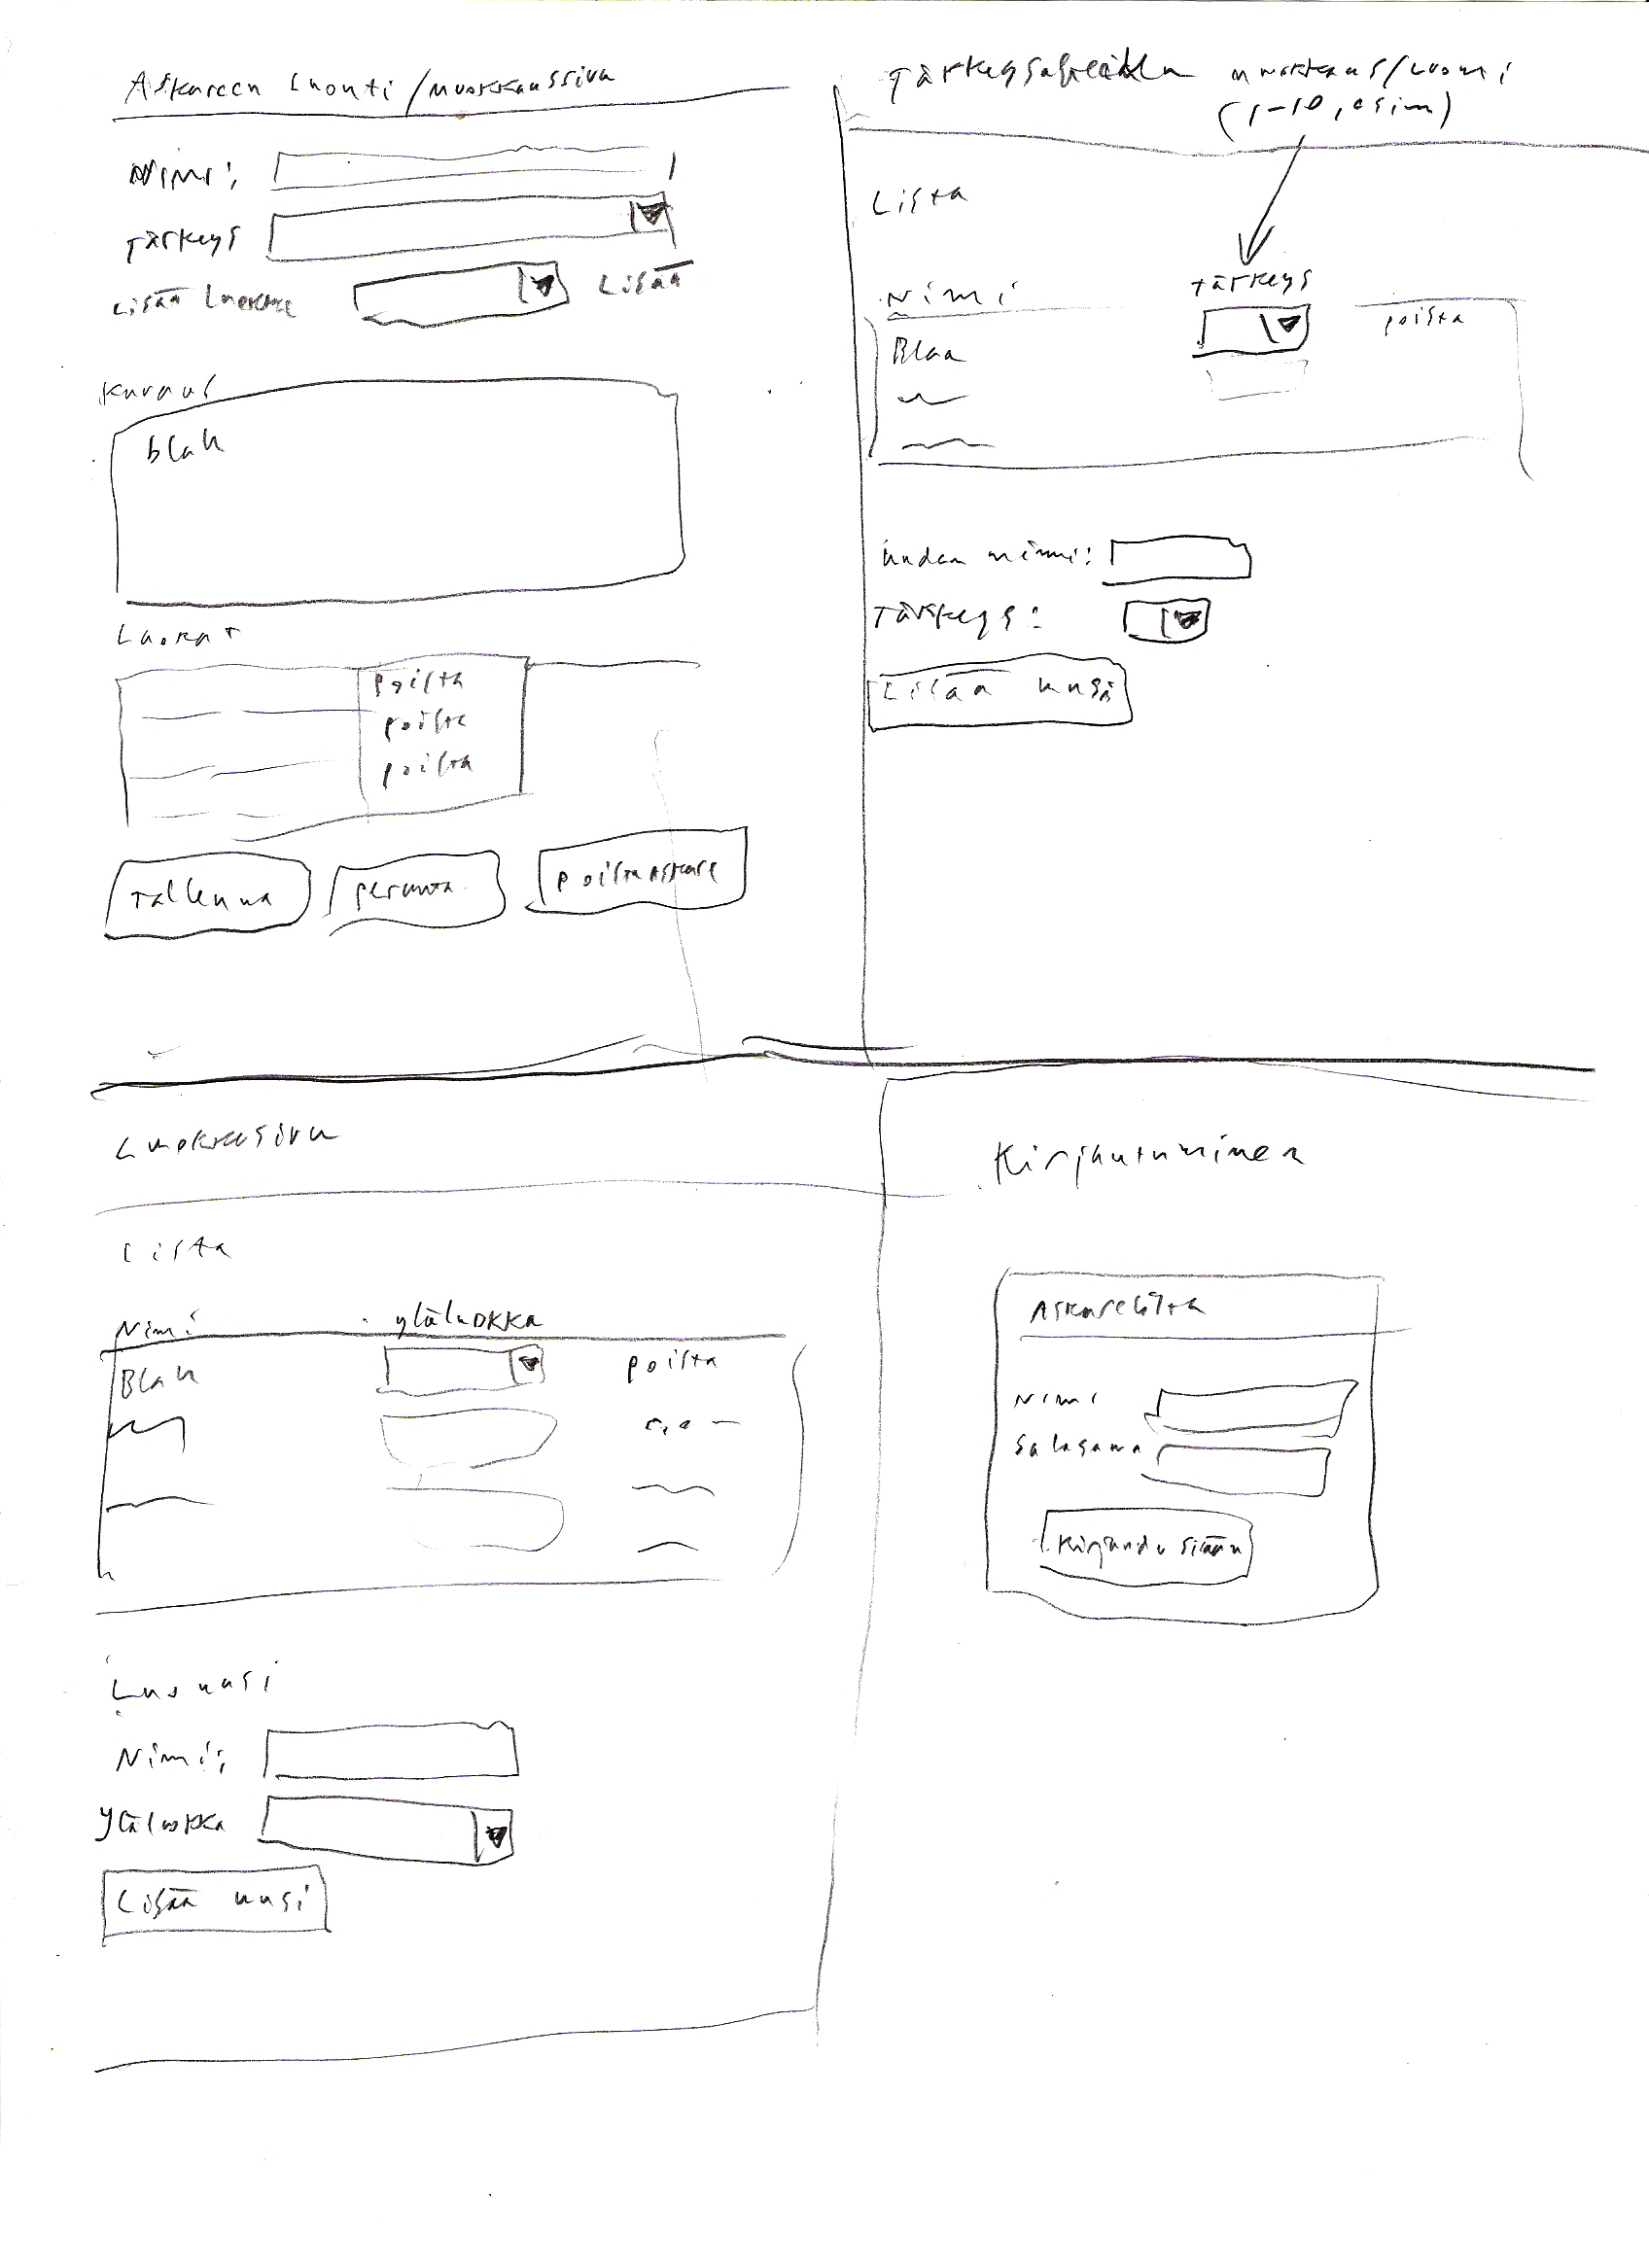 Askareen luonti/muokkaussivu
Nimi:
Tärkeys
Lisää luokka
Lisää
Kuvaus
blah
Luokat
poista
poista
poista
Tallenna
peruuta
poista askare
muokkaus/luonti
(1-10, esim)
Lista
Nimi
tärkeys
poista
Blaa
uuden nimi:
Tärkeys:
Lisää uusi
Luokkasivu
Lista
Nimi
yläluokka
Blah
poista
Luo uusi
Nimi:
Yläluokka
Lisää uusi
Kirjautuminen
Askarelista
Nimi
Salasana
Kirjaudu sisään